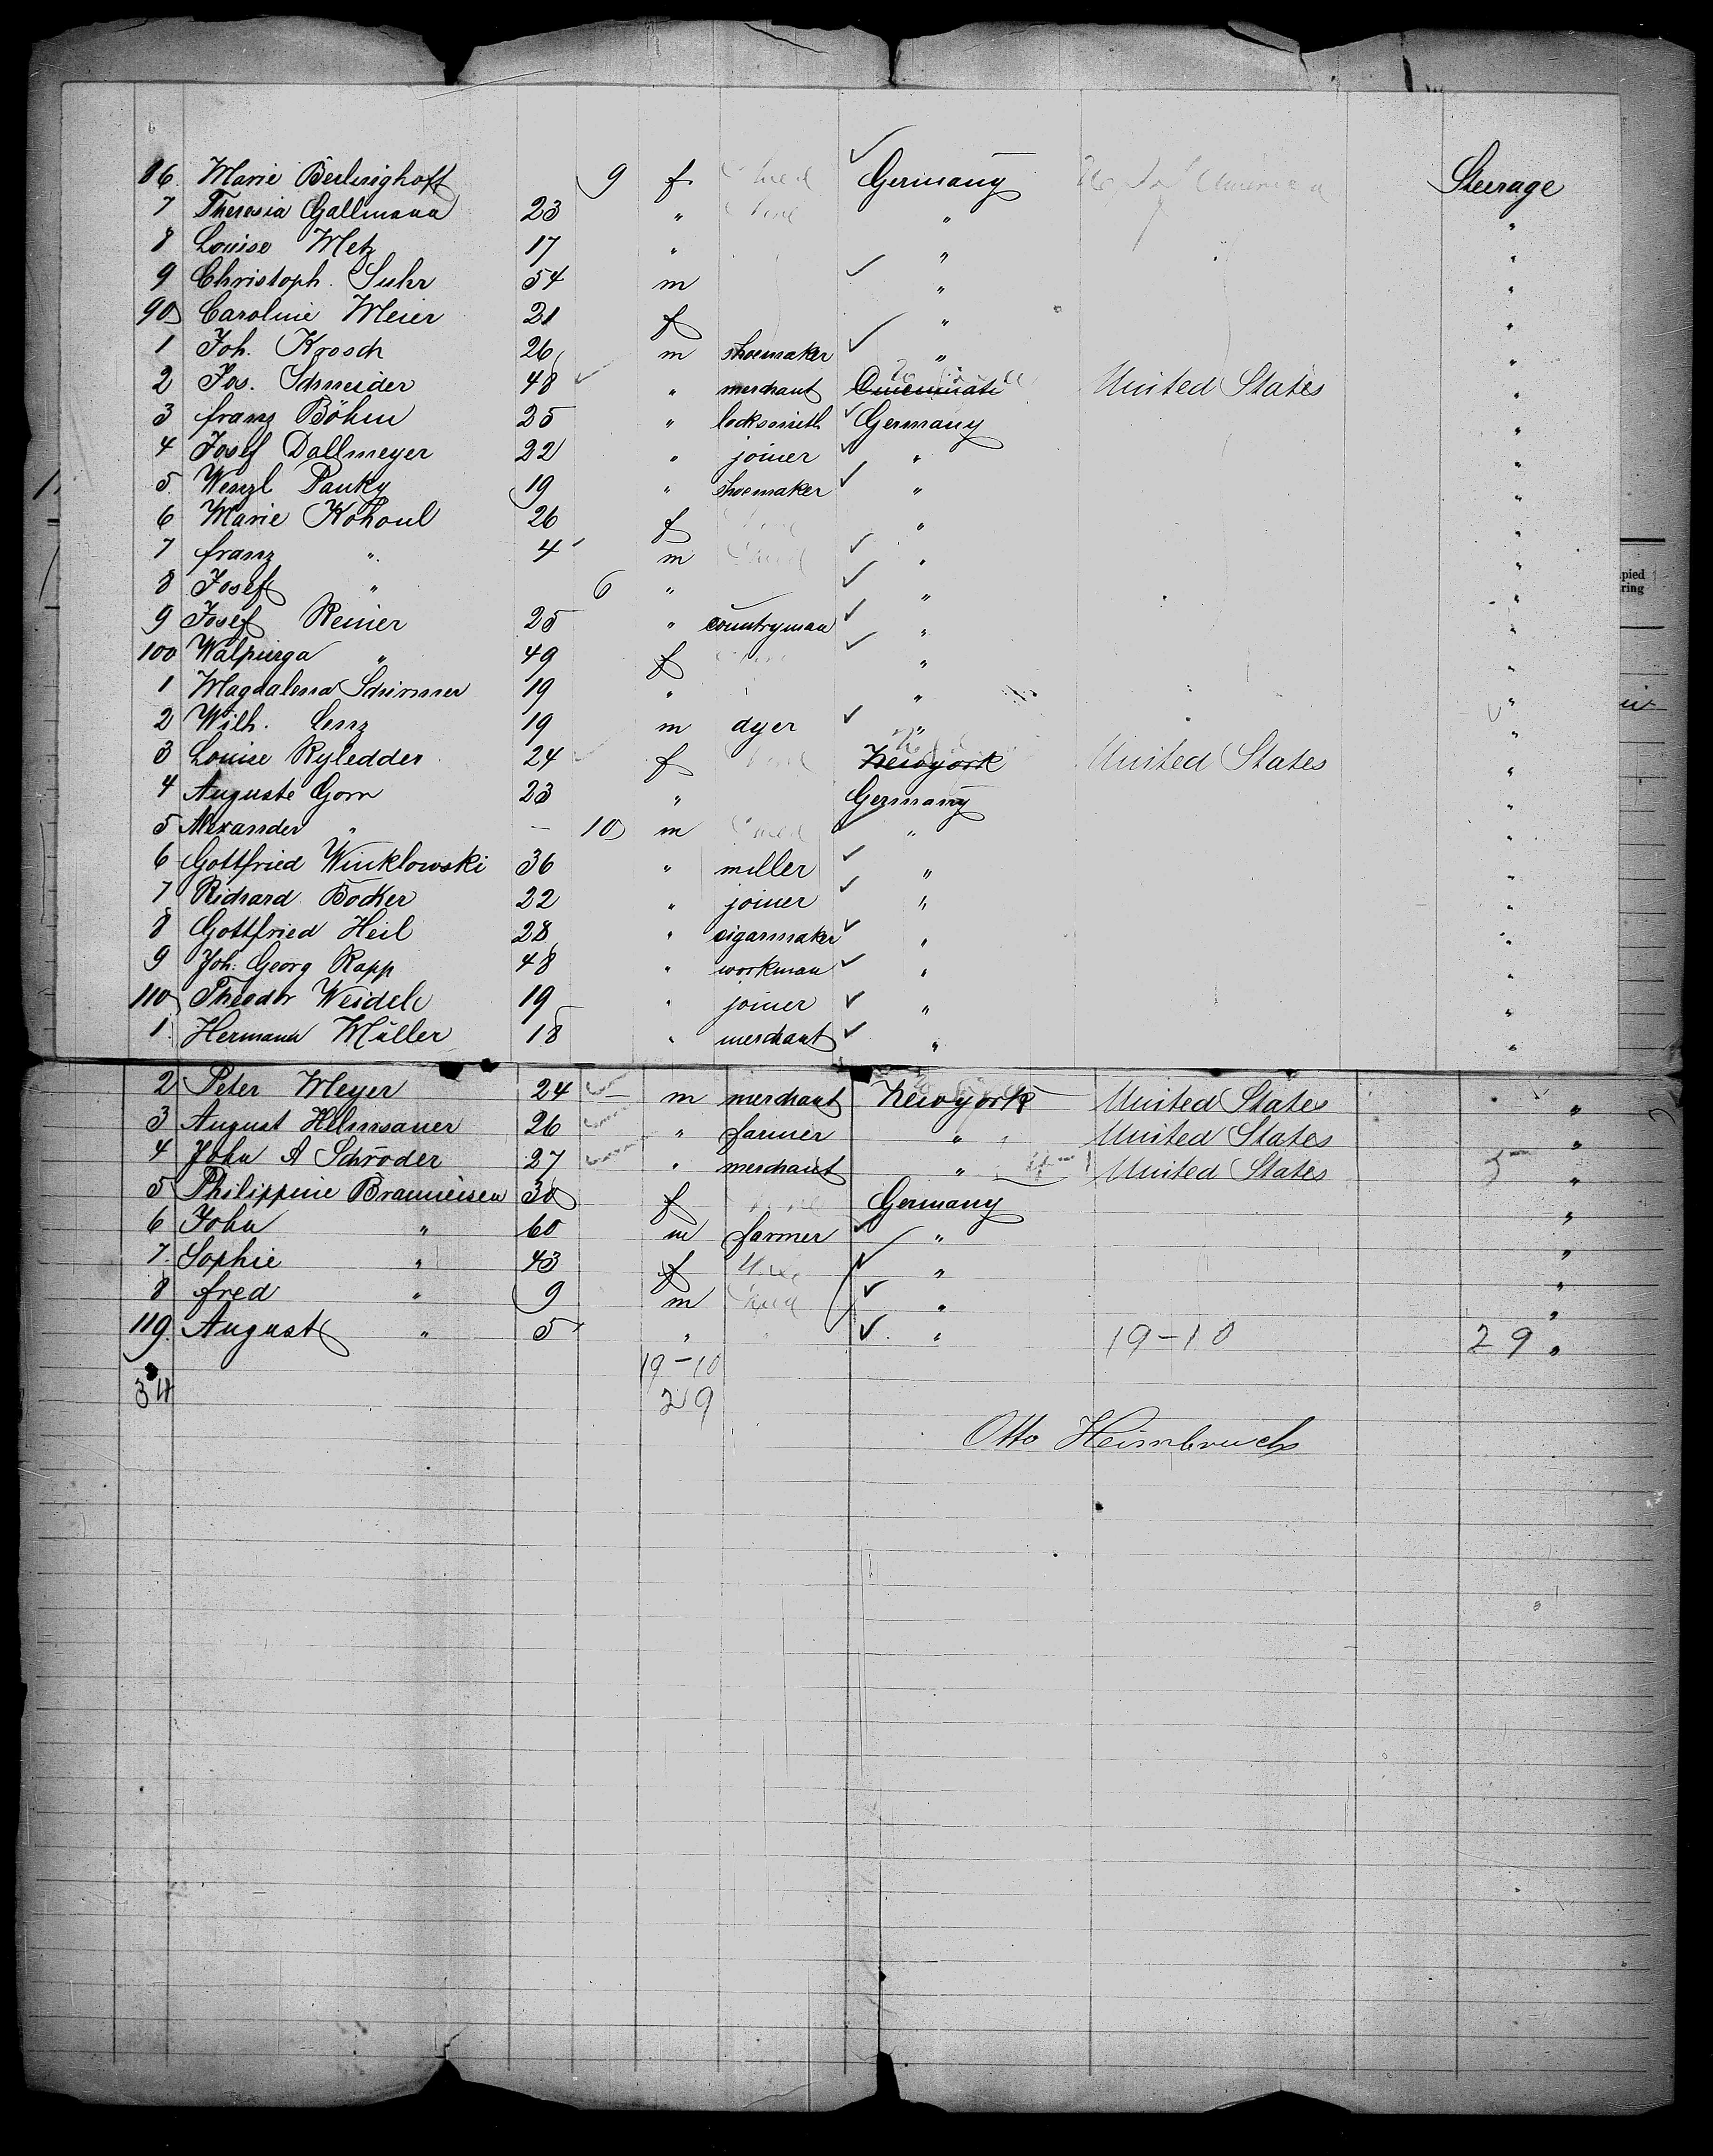 86. Marie Berlinghoff 9 f Child Germany U. S. of America Steerage
7 Theresia Gallmann 23 " None " "
8 Louise Metz 17 " " "
9 Christoph. Suhr 54 m " "
90 Caroline Meier 21 f " "
1 Joh. Krosch 26 m shoemaker " "
2 Jos. Schneider 48 " merchant Cincinnati United States "
3 franz Böhm 25 " locksmith Germany "
4 Josef Dallmeyer 22 " joiner " "
5. Wenzl Pauky 19 " shoemaker " "
6 Marie Kohoul 26 f None " "
7 franz " 4 m Child " "
8 Josef " 6 " " "
9 Josef Reiner 25 " countryman " "
100 Walpurga " 49 f None " "
1 Magdalena Schirmer 19 " " "
2 Wilh. Lenz 19 m dyer " "
3 Louise Ryledder 24 f None Newyork United States "
4 Auguste Gorn 23 " Germany "
5 Alexander " — 10 m Child " "
6 Gottfried Winklowski 36 " miller " "
7 Richard Böcker 22 " joiner " "
8 Gottfried Heil 28 " cigarmaker " "
9 Joh. Georg Rapp 48 " workman " "
110 Theodor Weidele 19 " joiner " "
1. Hermann Müller 18 " merchant " "
2 Peter Meyer 24 — m merchant Newyork United States "
3 August Helmsauer 26 " farmer " United States "
4 John A Schröder 27 " merchant " 4-1 United States 5 "
5 Philippine Brauneisen 30 f None Germany "
6 John " 60 m farmer " "
7. Sophie " 43 f None " "
8 fred " 9 m Child " "
119. August " 5 " " " 19-10 29 "
19-10
34 29
Otto Heimbruch
pied
ring